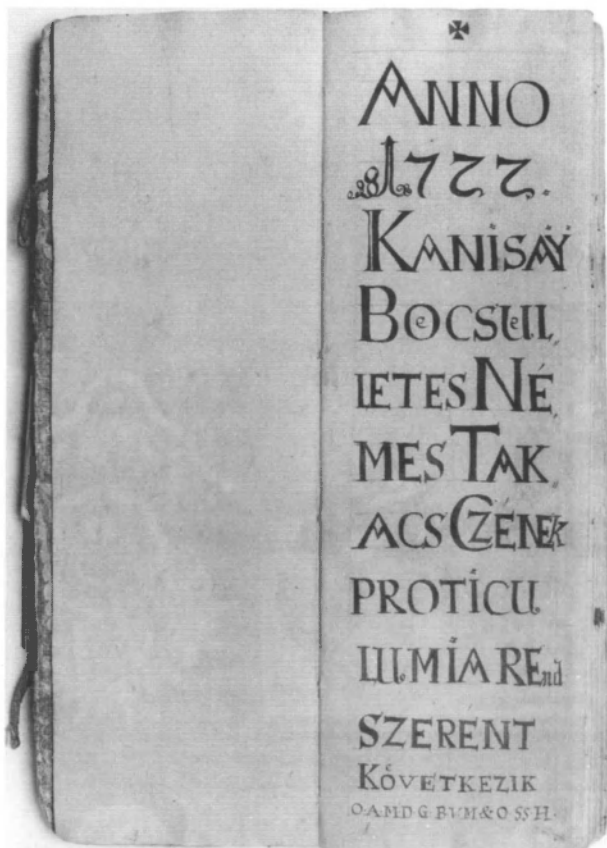 ✠
ANNO
1722.
KANISAÿ
BOCSUL,
LETES NÉ,
MES TAK,
ACS CZÉNEK
PROTICU
LUMIA REnd
SZERENT
KÖVETKEZIK
O.A.M.D.G. B.V.M & O SS H.